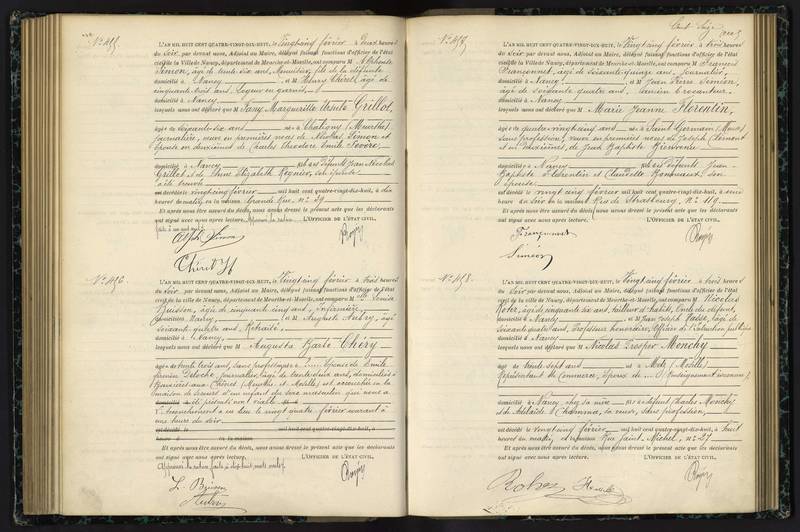 N° 455
L'AN MIL HUIT CENT QUATRE-VINGT-DIX-HUIT, le Vingt cinq février à Deux heures
du Soir par devant nous, Adjoint au Maire, délégué faisant fonctions d'officier de l'état
civil de la Ville de Nancy, département de Meurthe-et-Moselle, ont comparu M Alphonse
Simon, âgé de trente six ans, Menuisier, fils de la défunte
domicilié à Nancy et M Henry Thirel âgé de
cinquante trois ans, Logeur en garnis,
domicilié à Nancy
lesquels nous ont déclaré que M Fany Marguerite Ursule Grillot,
âgée de soixante-six ans née à Chaligny (Meurthe)
journalière, veuve en premières noces de Nicolas Simon et
Epouse en deuxièmes de Charles Théodore Emile
domiciliée à Nancy fille des défunts Jean Nicolas
Grillot et de Anne Elizabeth Régnier, son épouse
est décédée vingt cinq février mil huit cent quatre-vingt-dix-huit, à dix
heures du matin, en la maison Grande Rue, n° 29
Et après nous être assuré du décès, nous avons dressé le présent acte que les déclarants
ont signé avec nous après lecture. L'OFFICIER DE L'ÉTAT CIVIL,
Simon
N° 456
L'AN MIL HUIT CENT QUATRE-VINGT-DIX-HUIT, le Vingt cinq février à trois heures
du Soir par devant nous, Adjoint au Maire, délégué faisant fonctions d'officier de l'état
civil de la ville de Nancy, département de Meurthe-et-Moselle, ont comparu M Louise
Buisson, âgée de cinquante cinq ans, Infirmière
domiciliée Nancy et M Auguste Aubry, âgé
soixante quatre ans, Retraité
domicilié à Nancy,
lesquels nous ont déclaré que M Augusta Barbe Chéry
âgée de trente trois ans, sans profession, née à ?.... Epouse de Emile
Deloche, journalier, âgé de trente deux ans, domiciliés à
(Meurthe-et-Moselle) est accouchée en la
maison de secours d'un enfant du sexe masculin qui nous a
été présenté sans vie
L'accouchement a eu lieu le vingt quatre février courant à
une heure du soir
est décédé mil huit cent quatre-vingt-dix-huit, à
heures en la maison
Et après nous être assuré du décès, nous avons dressé le présent acte que les déclarants
ont signé avec nous après lecture. L'OFFICIER DE L'ÉTAT CIVIL,
L. Buisson
Aubry
N° 457
L'AN MIL HUIT CENT QUATRE-VINGT-DIX-HUIT, le Vingt cinq février à trois heures
du Soir par devant nous, Adjoint au Maire, délégué faisant fonctions d'officier de l'état
civil de la Ville de Nancy, département de Meurthe-et-Moselle, ont comparu M François
Françonnet, âgé de soixante quinze ans, journalier,
domicilié à Nancy et M Jean Pierre Siméon,
âgé de soixante quatre ans, ancien brocanteur
domicilié à Nancy
lesquels nous ont déclaré que M Marie Jeanne Florentin,
âgée de quatre-vingt cinq ans née à Saint Germain (Meuse)
sans profession, veuve en premières noces de Joseph Clément
et en deuxièmes, de Jean Baptiste
domiciliée à Nancy fille des défunts Jean-
Baptiste Florentin et Claudette son
épouse
est décédée vingt cinq février mil huit cent quatre-vingt-dix-huit, à une
heure du soir en la maison Rue de Strasbourg, n° 119
Et après nous être assuré du décès, nous avons dressé le présent acte que les déclarants
ont signé avec nous après lecture. L'OFFICIER DE L'ÉTAT CIVIL,
Françonnet
Siméon
N° 458
L'AN MIL HUIT CENT QUATRE-VINGT-DIX-HUIT, le Vingt cinq février à trois heures
du Soir par devant nous, Adjoint au Maire, délégué faisant fonctions d'officier de l'état
civil de la ville de Nancy, département de Meurthe-et-Moselle, ont comparu M Nicolas
Rohr, âgé de cinquante six ans, tailleur d'habits, Oncle du défunt,
domicilié à Nancy et M Jean Joseph âgé de
soixante quatre ans, Professeur honoraire, Officier de l'instruction publique
domicilié à Nancy
lesquels nous ont déclaré que M Nicolas Prosper Monchy
âgé de trente sept ans né à Metz (Moselle)
Représentant de Commerce, époux de ... (Renseignement inconnu)
domicilié à Nancy chez sa mère fils de défunt Charles Monchy
et de Adélaïde sa veuve, sans profession,
est décédé Vingt cinq février mil huit cent quatre-vingt-dix-huit, à huit
heures du matin, en la maison Rue Saint Michel, n° 27
Et après nous être assuré du décès, nous avons dressé le présent acte que les déclarants
ont signé avec nous après lecture. L'OFFICIER DE L'ÉTAT CIVIL,
Rohr